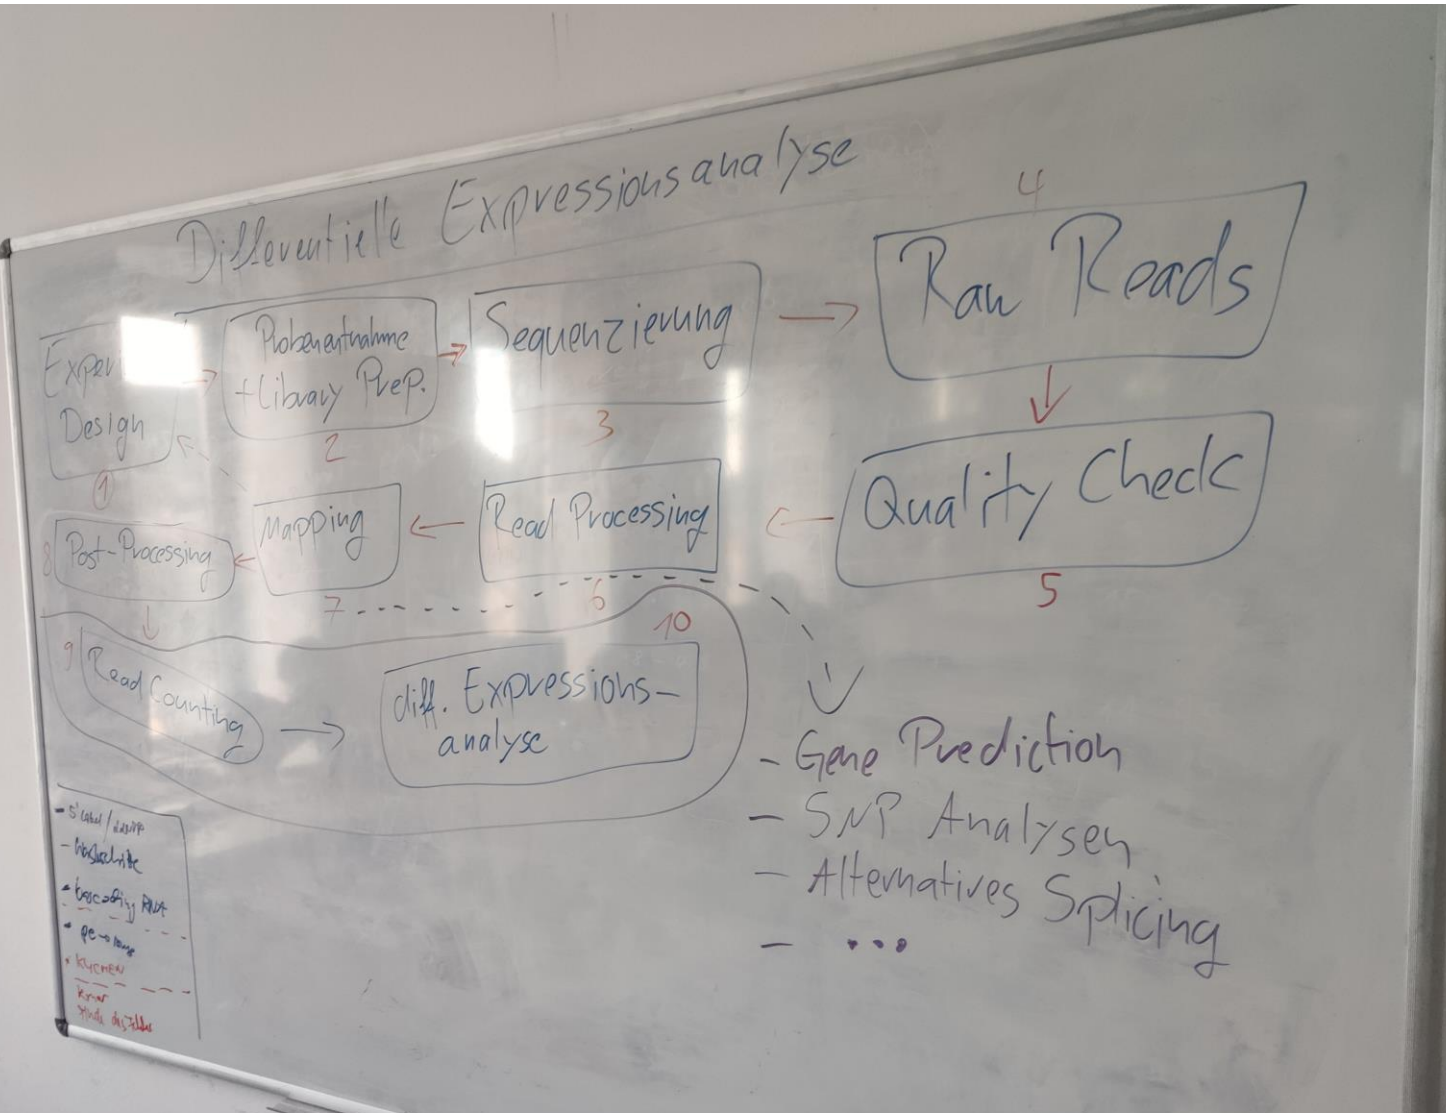 Differentielle Expressionsanalyse
Exper
Design
1
Probenentnahme
+Library Prep.
2
Sequenzierung
3
4
Raw Reads
Quality Check
5
Read Processing
6
Mapping
7
8
Post-Processing
9
Read Counting
10
diff. Expressions-
analyse
- Gene Prediction
- SNP Analysen
- Alternatives Splicing
- ...
RNA
KUCHEN